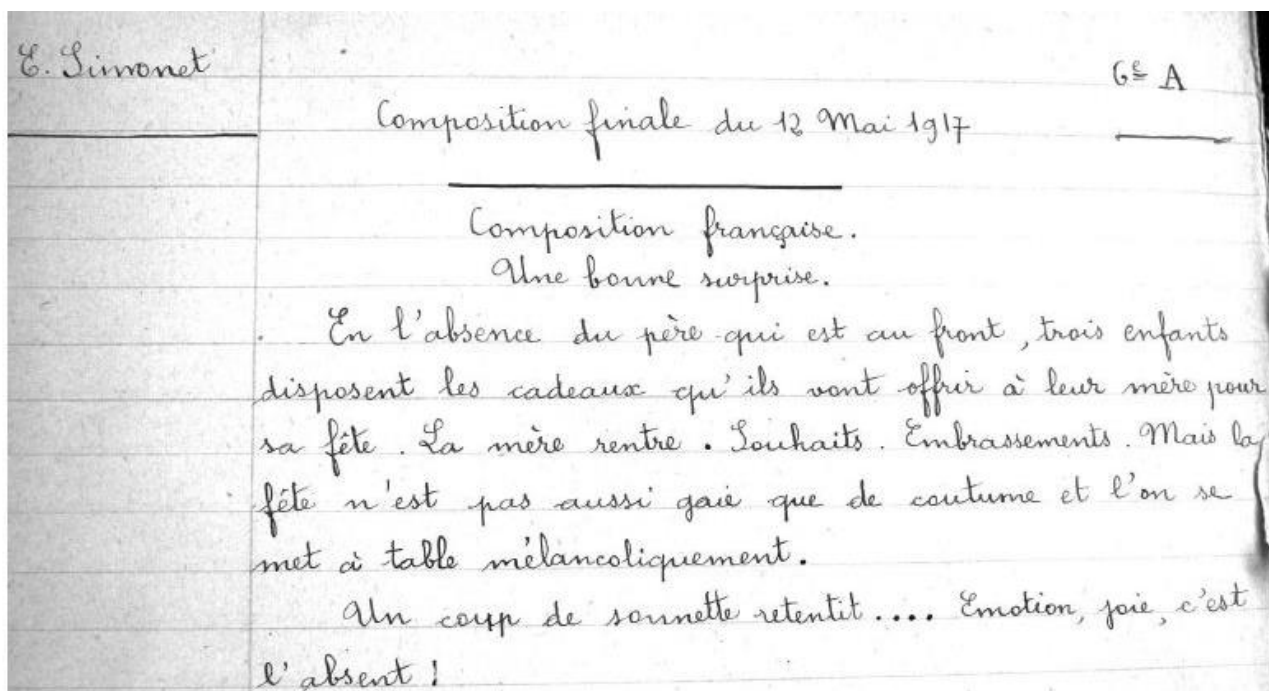 E. Simonet
6e A
Composition finale du 12 Mai 1917
Composition française.
Une bonne surprise.
En l'absence du père qui est au front, trois enfants
disposent les cadeaux qu'ils vont offrir à leur mère pour
sa fête. La mère rentre. Souhaits. Embrassements. Mais la
fête n'est pas aussi gaie que de coutume et l'on se
met à table mélancoliquement.
Un coup de sonnette retentit.... Emotion, joie, c'est
l'absent !